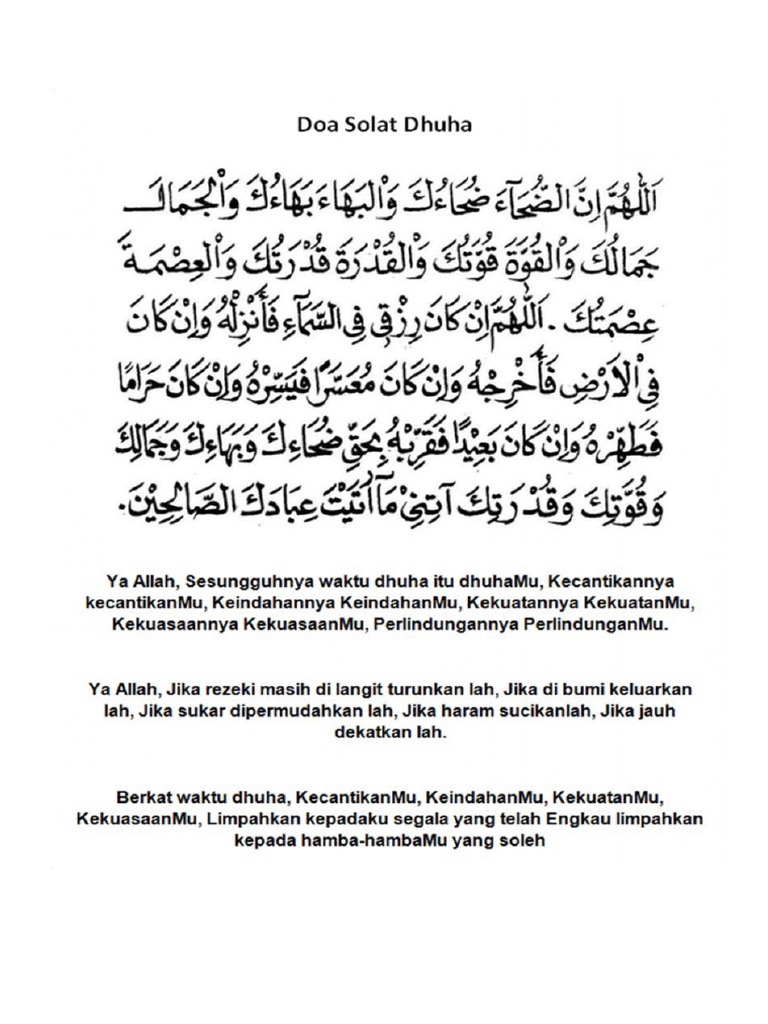 Doa Solat Dhuha
اَللّٰهُمَّ اِنَّ الضُّحَآءَ ضُحَاءُكَ وَالْبَهَاءَ بَهَاءُكَ وَالْجَمَالَ
جَمَالُكَ وَالْقُوَّةَ قُوَّتُكَ وَالْقُدْرَةَ قُدْرَتُكَ وَالْعِصْمَةَ
عِصْمَتُكَ . اَللّٰهُمَّ اِنْ كَانَ رِزْقِى فِى السَّمَآءِ فَأَنْزِلْهُ وَاِنْ كَانَ
فِى الْاَرْضِ فَأَخْرِجْهُ وَاِنْ كَانَ مُعَسَّرًا فَيَسِّرْهُ وَاِنْ كَانَ حَرَامًا
فَطَهِّرْهُ وَاِنْ كَانَ بَعِيْدًا فَقَرِّبْهُ بِحَقِّ ضُحَاءِكَ وَبَهَاءِكَ وَجَمَالِكَ
وَقُوَّتِكَ وَقُدْرَتِكَ آتِنِىْ مَآ اٰتَيْتَ عِبَادَكَ الصَّالِحِيْنَ.
Ya Allah, Sesungguhnya waktu dhuha itu dhuhaMu, Kecantikannya
kecantikanMu, Keindahannya KeindahanMu, Kekuatannya KekuatanMu,
Kekuasaannya KekuasaanMu, Perlindungannya PerlindunganMu.
Ya Allah, Jika rezeki masih di langit turunkan lah, Jika di bumi keluarkan
lah, Jika sukar dipermudahkan lah, Jika haram sucikanlah, Jika jauh
dekatkan lah.
Berkat waktu dhuha, KecantikanMu, KeindahanMu, KekuatanMu,
KekuasaanMu, Limpahkan kepadaku segala yang telah Engkau limpahkan
kepada hamba-hambaMu yang soleh